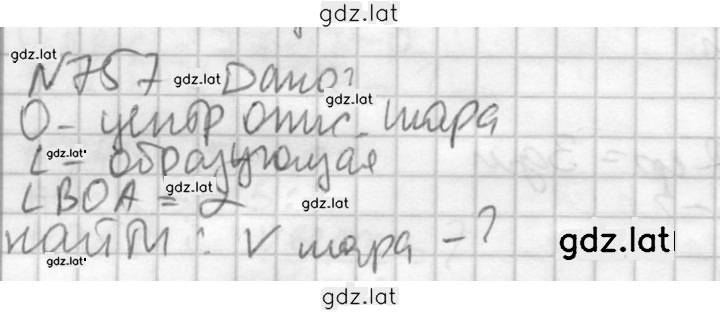 gdz.lat
gdz.lat
N757 gdz.lat Дано:
gdz.lat
О- центр опис. шара
L - gdz.lat образующая
∠BOA = α
gdz.lat gdz.lat
найти: V шара -?
gdz.lat gdz.lat gdz.lat
gdz.lat